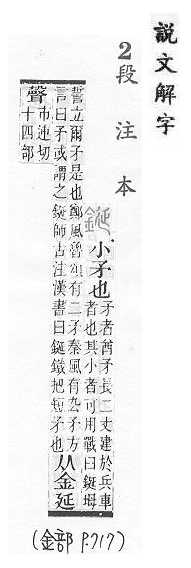 說文解字
2段注本
鋋
小矛也
矛者酋矛長二丈建於兵車
者也其小者可用戰曰鋋坶
誓立爾矛是也鄭風魯頌有二矛秦風有厹矛方
言曰矛或謂之鋋師古注漢書曰鋋鐵把短矛也
从金延
聲
市連切
十四部
(金部 P.717)